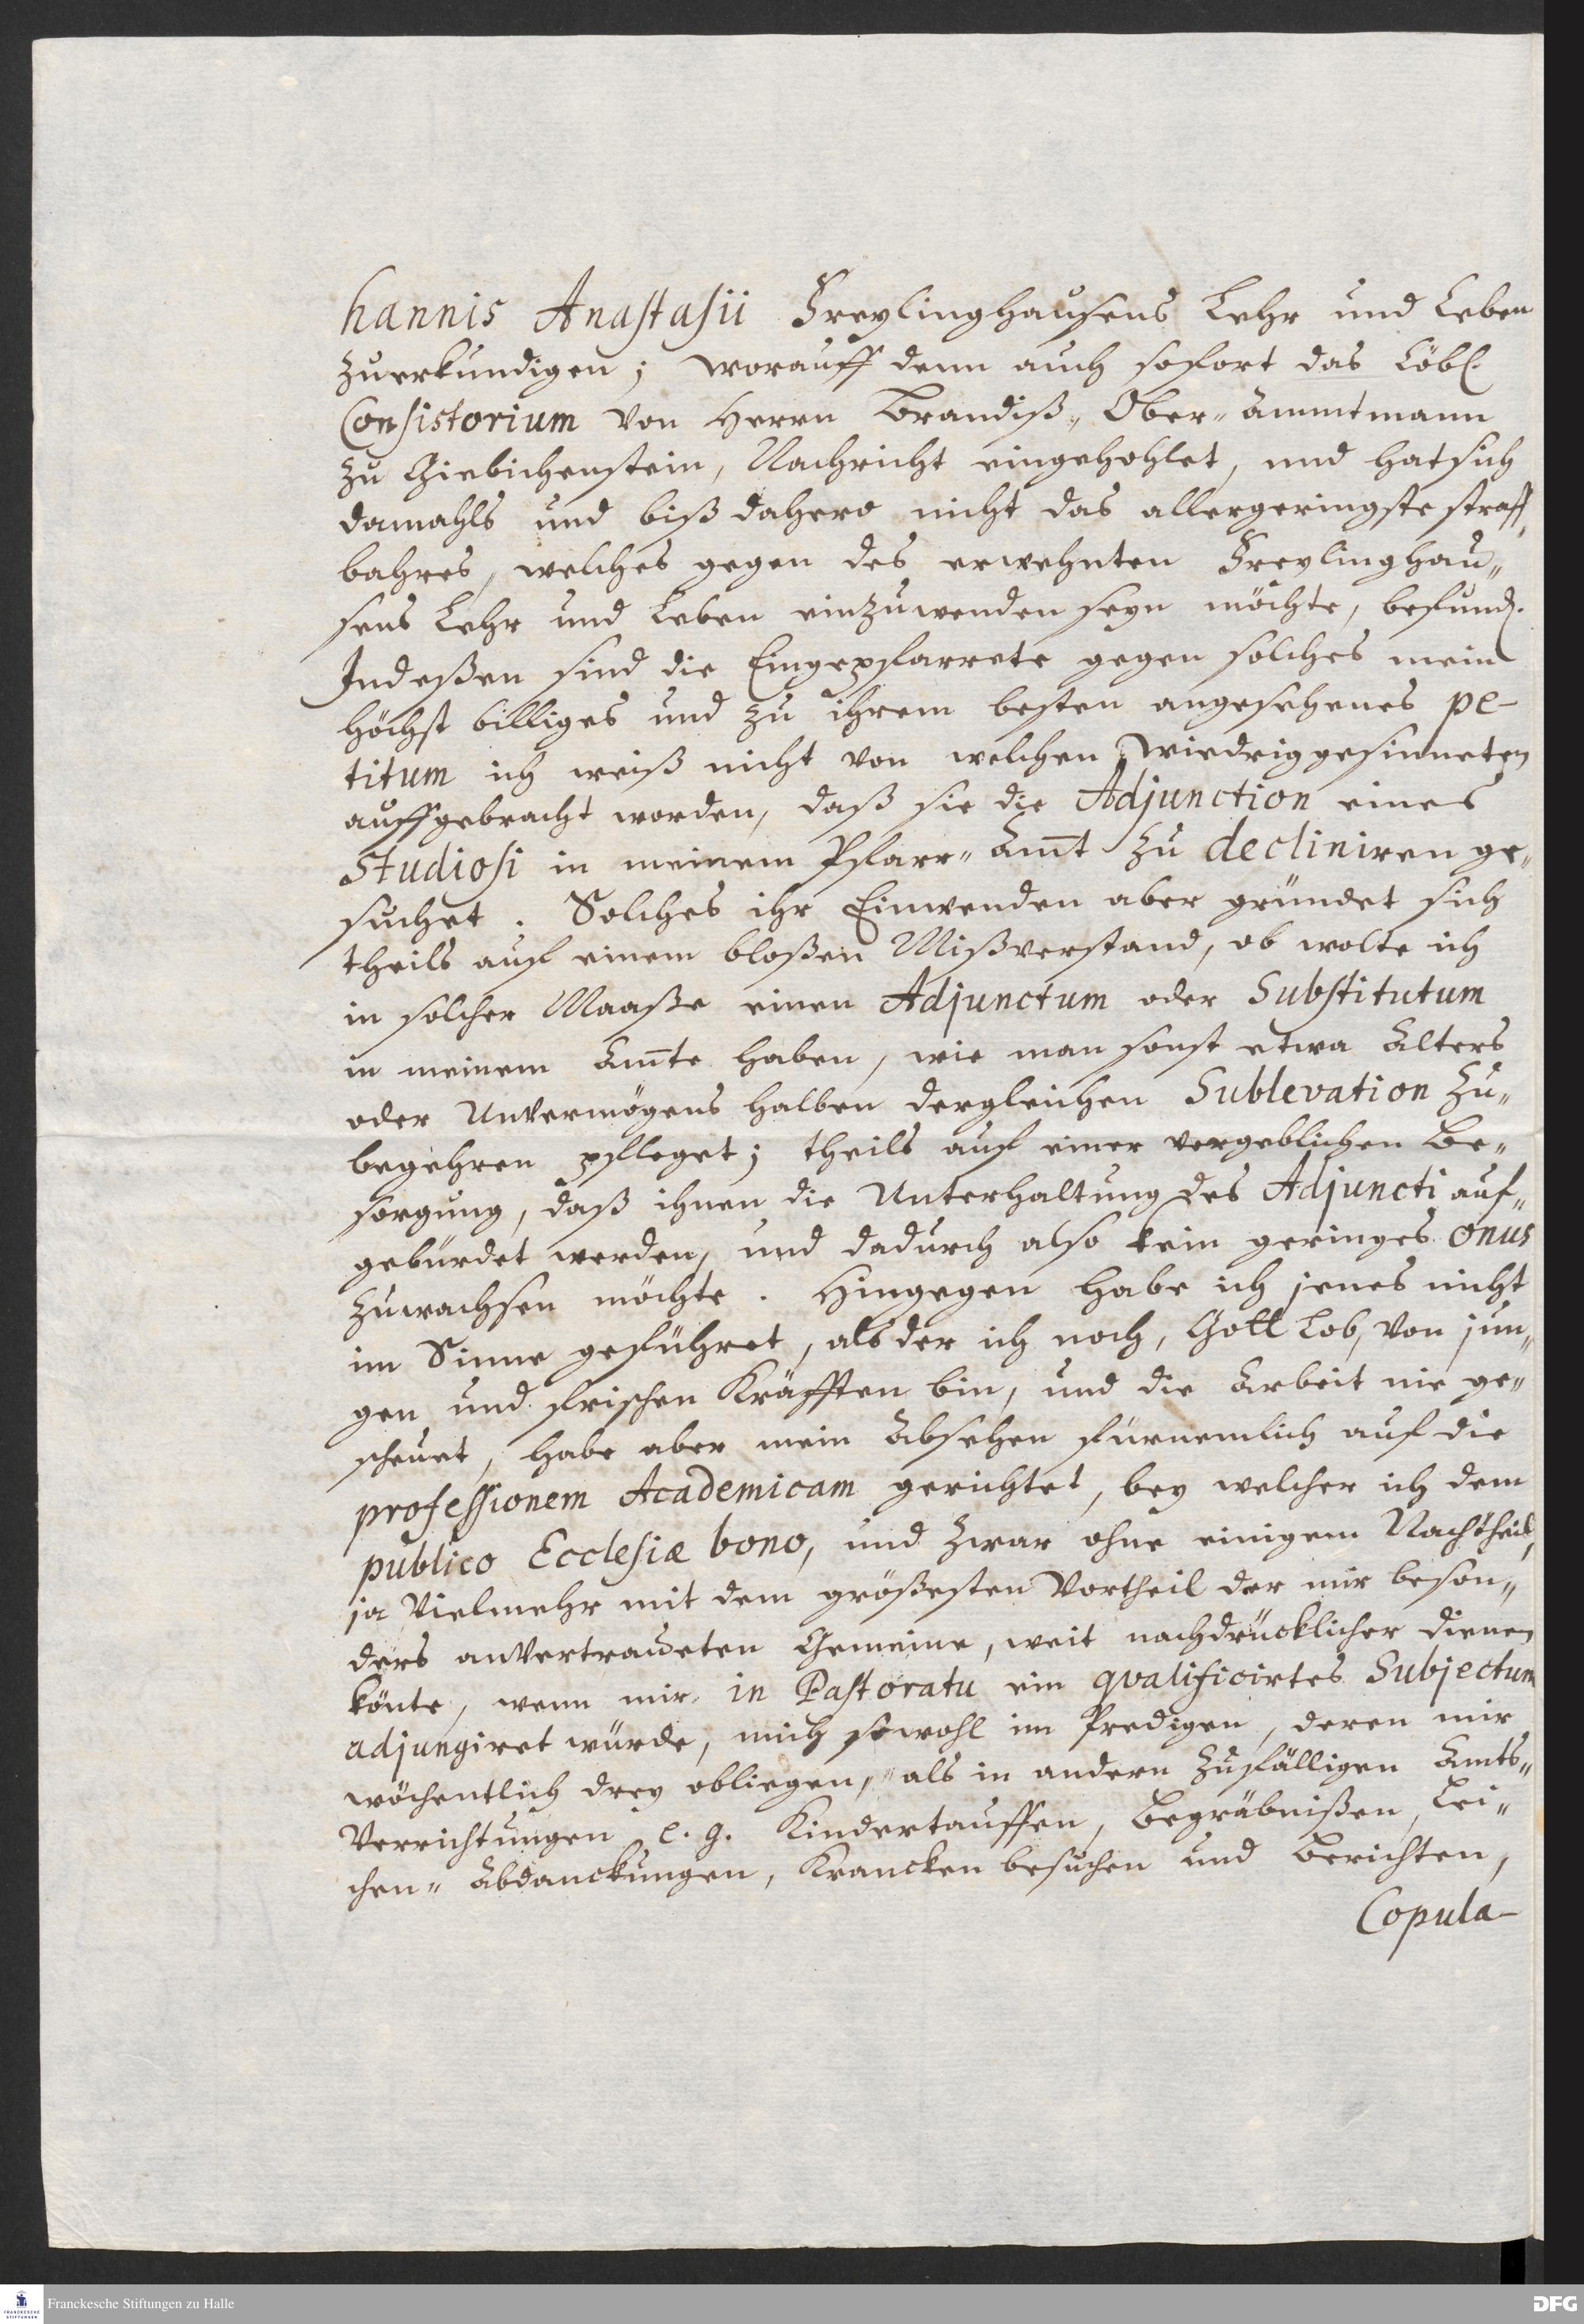 hannis Anastasii Freylinghausens Lehr und Leben
zuerkundigen; worauff denn auch sofort das Löbl.
Consistorium von Herrn Brandiß, Ober-Ammtmann
zu Giebichenstein, Nachricht eingehohlet, und hat sich
damahls und biß dahero nicht das allergeringste straff-
bahres, welches gegen des erwehnten Freylinghau-
sens Lehr und Leben einzuwenden seyn möchte, befund.
Indeßen sind die Eingepfarrete gegen solches mein
höchst billiges und zu ihrem besten angesehenes pe-
titum ich weiß nicht von welchen wiedriggesinneten
auffgebracht worden, daß sie die Adjunction eines
Studiosi in meinem Pfarr-Am̄t zu decliniren ge-
suchet. Solches ihr Einwenden aber gründet sich
theils auf einem bloßen Mißverstand, ob wolte ich
in solcher Maaße einen Adjunctum oder Substitutum
in meinem Am̄te haben, wie man sonst etwa Alters
oder Unvermögens halben dergleichen Sublevation zu-
begehren pfleget; theils auf einer vergeblichen Be-
sorgung, daß ihnen die Unterhaltung des Adjuncti auf-
gebürdet werden, und dadurch also kein geringes onus
zuwachsen möchte. Hingegen habe ich jenes nicht
im Sinne geführet, als der ich noch, Gott Lob, von jun-
gen und frischen Kräfften bin, und die Arbeit nie ge-
scheuet, habe aber mein Absehen fürnemlich auf die
professionem Academicam gerichtet, bey welcher ich dem
publico Ecclesiæ bono, und zwar ohne einigem Nachtheil,
ja vielmehr mit dem größesten Vortheil der mir beson-
ders anvertraueten Gemeine, weit nachdrücklicher dienen
könte, wenn mir in Pastoratu ein qvalificirtes Subjectum
adjungiret würde, mich sowohl im Predigen, deren mir
wöchentlich drey obliegen, als in andern zufälligen Amts-
Verrichtungen e. g. Kindertauffen, Begräbnißen, Lei-
chen-Abdanckungen, Krancken besuchen und Berichten,
Copula-
Franckesche Stiftungen zu Halle
FRANCKESCHE
STIFTUNGEN
DFG